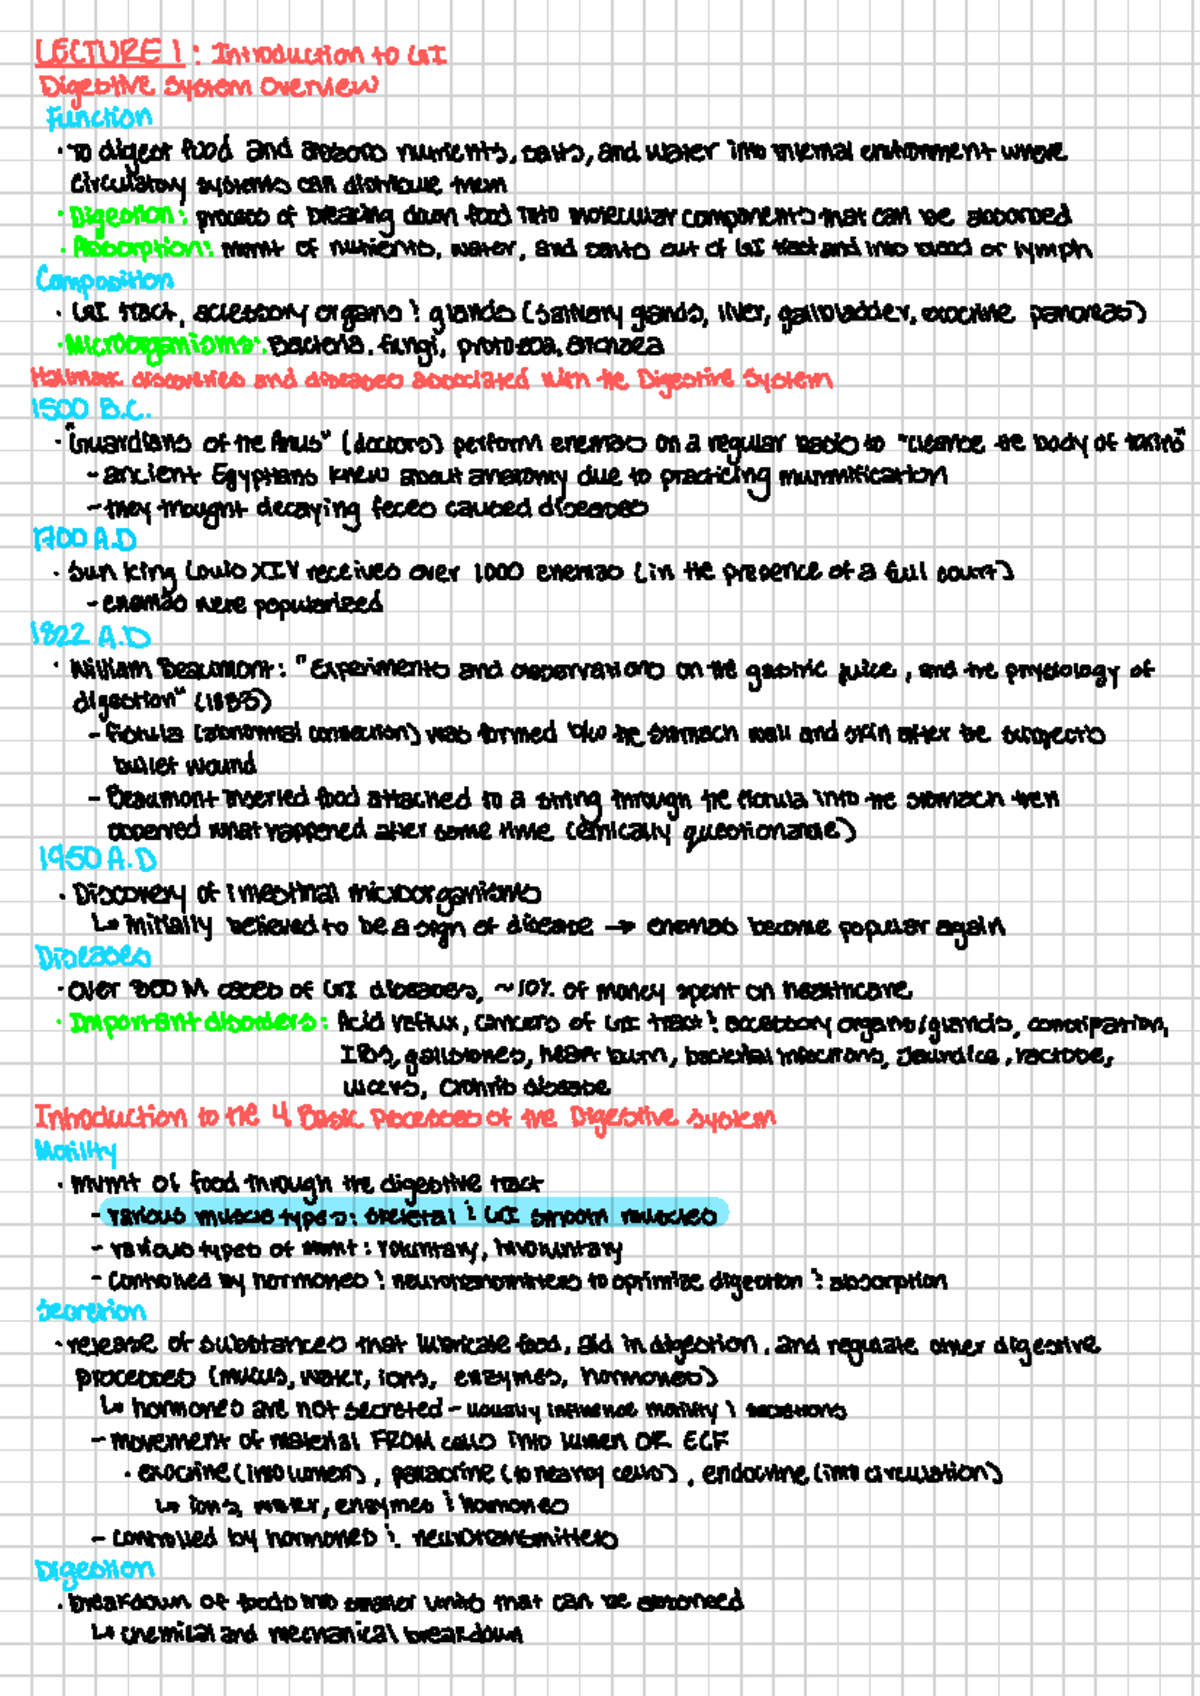 LECTURE 1: Introduction to GI
Digestive System Overview
Function
· To digest food and absorb nutrients, salts, and water into internal environment where
circulatory systems can distribute them
· Digestion: process of breaking down food into molecular components that can be absorbed
· Absorption: mvmt of nutrients, water, and salts out of GI tract and into blood or lymph
Composition
· GI tract, accessory organs & glands (salivary glands, liver, gallbladder, exocrine pancreas)
· Microorganisms: Bacteria, fungi, protozoa, archaea
Hallmark discoveries and diseases associated with the Digestive System
1500 B.C.
· "Guardians of the Anus" (doctors) perform enemas on a regular basis to "cleanse the body of toxins"
- ancient Egyptians knew about anatomy due to practicing mummification
- they thought decaying feces caused diseases
1700 A.D
· Sun King Louis XIV receives over 1000 enemas (in the presence of a full court)
- enemas were popularized
1822 A.D
· William Beaumont: "Experiments and observations on the gastric juice, and the physiology of
digestion" (1833)
- fistula (abnormal connection) was formed b/w the stomach wall and skin after the subject's
bullet wound
- Beaumont inserted food attached to a string through the fistula into the stomach then
observed what happened after some time (ethically questionable)
1950 A.D
· Discovery of intestinal microorganisms
↳ initially believed to be a sign of disease → enemas become popular again
Diseases
· over 300 M cases of GI diseases, ~10% of money spent on healthcare
· Important disorders: Acid reflux, cancers of GI tract & accessory organs/glands, constipation,
IBS, gallstones, heart burn, bacterial infections, jaundice, lactose,
ulcers, Crohn's disease
Introduction to the 4 Basic Processes of the Digestive System
Motility
· mvmt of food through the digestive tract
- various muscle types: skeletal & GI smooth muscles
- various types of mvmt: voluntary, involuntary
- Controlled by hormones & neurotransmitters to optimize digestion & absorption
Secretion
· release of substances that lubricate food, aid in digestion, and regulate other digestive
processes (mucus, water, ions, enzymes, hormones)
↳ hormones are not secreted - usually influence motility & secretions
- movement of material FROM cells into lumen OR ECF
· exocrine (into lumen), paracrine (to nearby cells), endocrine (into circulation)
↳ ions, water, enzymes & hormones
- controlled by hormones & neurotransmitters
Digestion
· breakdown of foods into smaller units that can be absorbed
↳ chemical and mechanical breakdown